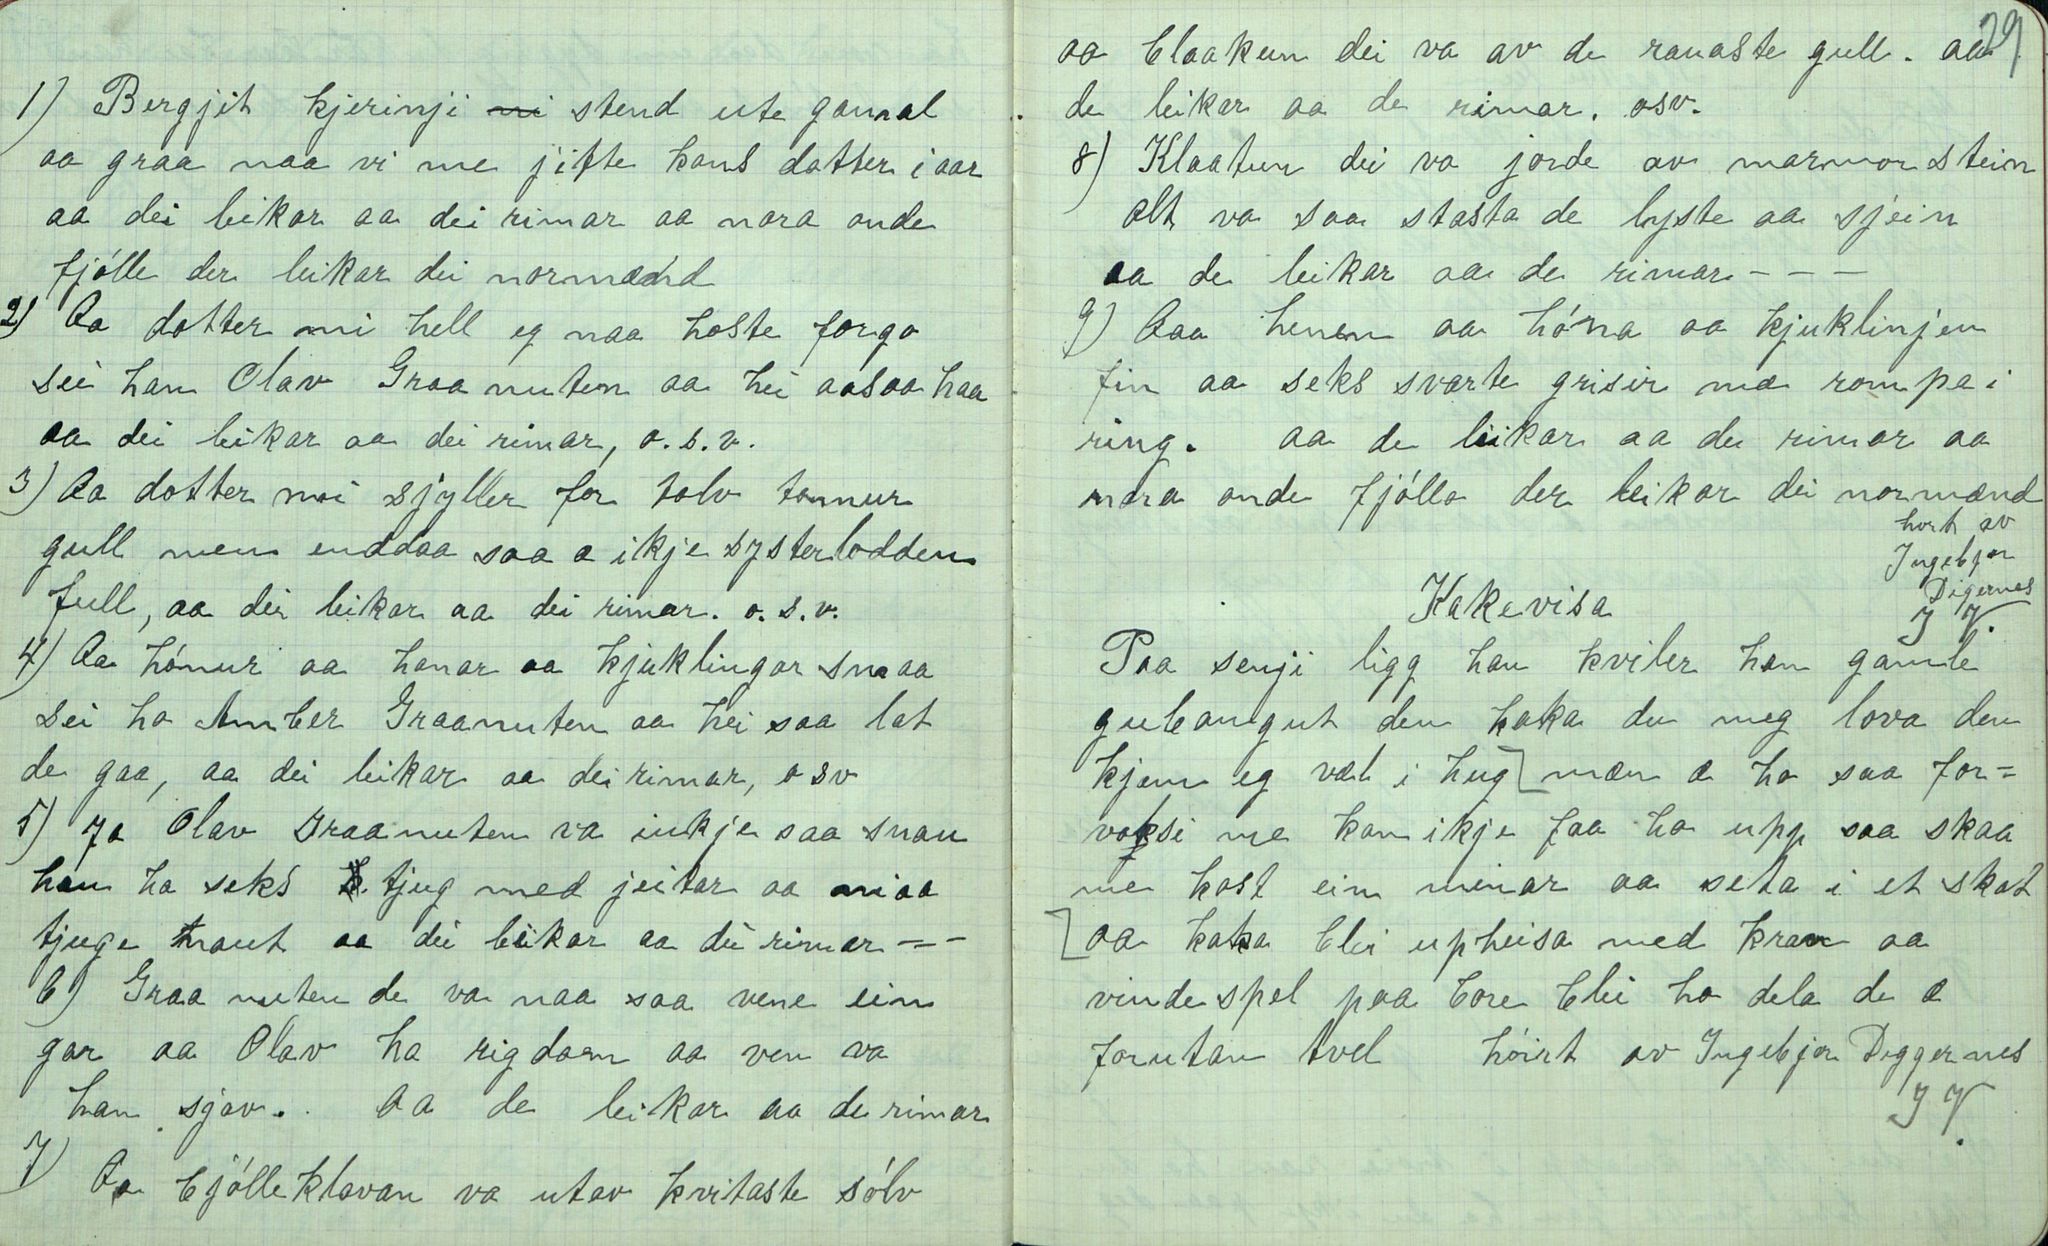 1) Bergjit kjerinji ni stend ute gamal
aa graa naa vi me jifte hans datter i aar
aa dei leikar aa dei rimar aa nora onde
fjólle der leikar dei normænd
2) Aa dotter mi hell eg naa hoste forgo
sei han Olav Graanuten aa hei aasaa haa
aa dei leikar aa dei rimar, o.s.v.
3) Aa dotter mi sjyller for tolv tonnur
gull men enddaa saa æ ikje systerlodden
full, aa dei leikar aa dei rimar. o.s.v.
4) Aa hónur aa hanar aa kjuklingar smaa
sei ho Amber Graanuten aa hei saa lat
de gaa, aa dei leikar aa dei rimar, osv
5) Ja Olav Graanuten va inkje saa snau
han ha seks tjug med jeitar aa ni aa
tjuge naut aa dei leikar aa dei rimar – –
6) Graanuten de va naa saa vene ein
gar aa Olav ha rigdom aa ven va
han sjav. Aa de leikar aa de rimar
7) Aa bjólleklavan va utav kvitaste sólv
29
aa blaakun dei va av de rauaste gull. aa
de leikar aa de rimar. osv.
8) Klaatun dei va jorde av marmorstein
alt va saa stasta de lyste aa sjein
aa de leikar aa de rimar – – –
9) Aaa henen aa hóna aa kjuklinjen
fin aa seks svarte grisir mæ rompa i
ring. aa de leikar aa de rimar aa
nora onde fjólla der leikar dei normænd
hort av
Ingebjor
Digernes
J V.
Kakevisa
Paa senji ligg han kviler han gamle
gubangut den kaka du meg lova den
kjem eg væl i hug] mæn æ ho saa for=
voksi me kan ikje faa ho upp saa skaa
me kost ein minar aa seta i et skot
[aa kaka blei upheisa med kran aa
vindespel paa bore blei ho dela de æ
forutan tvel hóirt av Ingebjor Diggernes
J V.